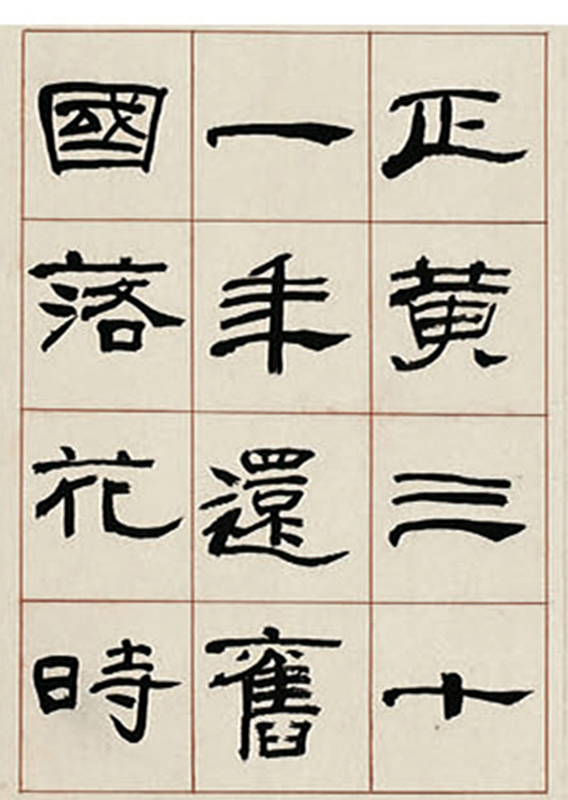 正黄三十
一年還舊
國落花時